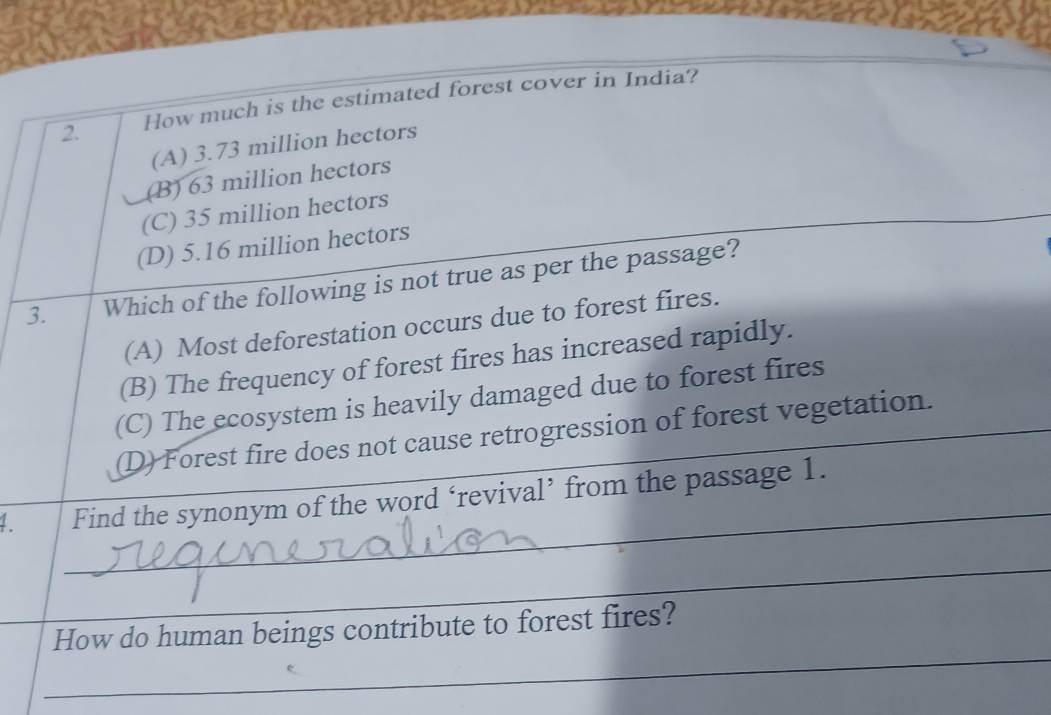 2. How much is the estimated forest cover in India?
(A) 3.73 million hectors
(B) 63 million hectors
(C) 35 million hectors
(D) 5.16 million hectors
3. Which of the following is not true as per the passage?
(A) Most deforestation occurs due to forest fires.
(B) The frequency of forest fires has increased rapidly.
(C) The ecosystem is heavily damaged due to forest fires
(D) Forest fire does not cause retrogression of forest vegetation.
4. Find the synonym of the word ‘revival’ from the passage 1.
regeneration
How do human beings contribute to forest fires?